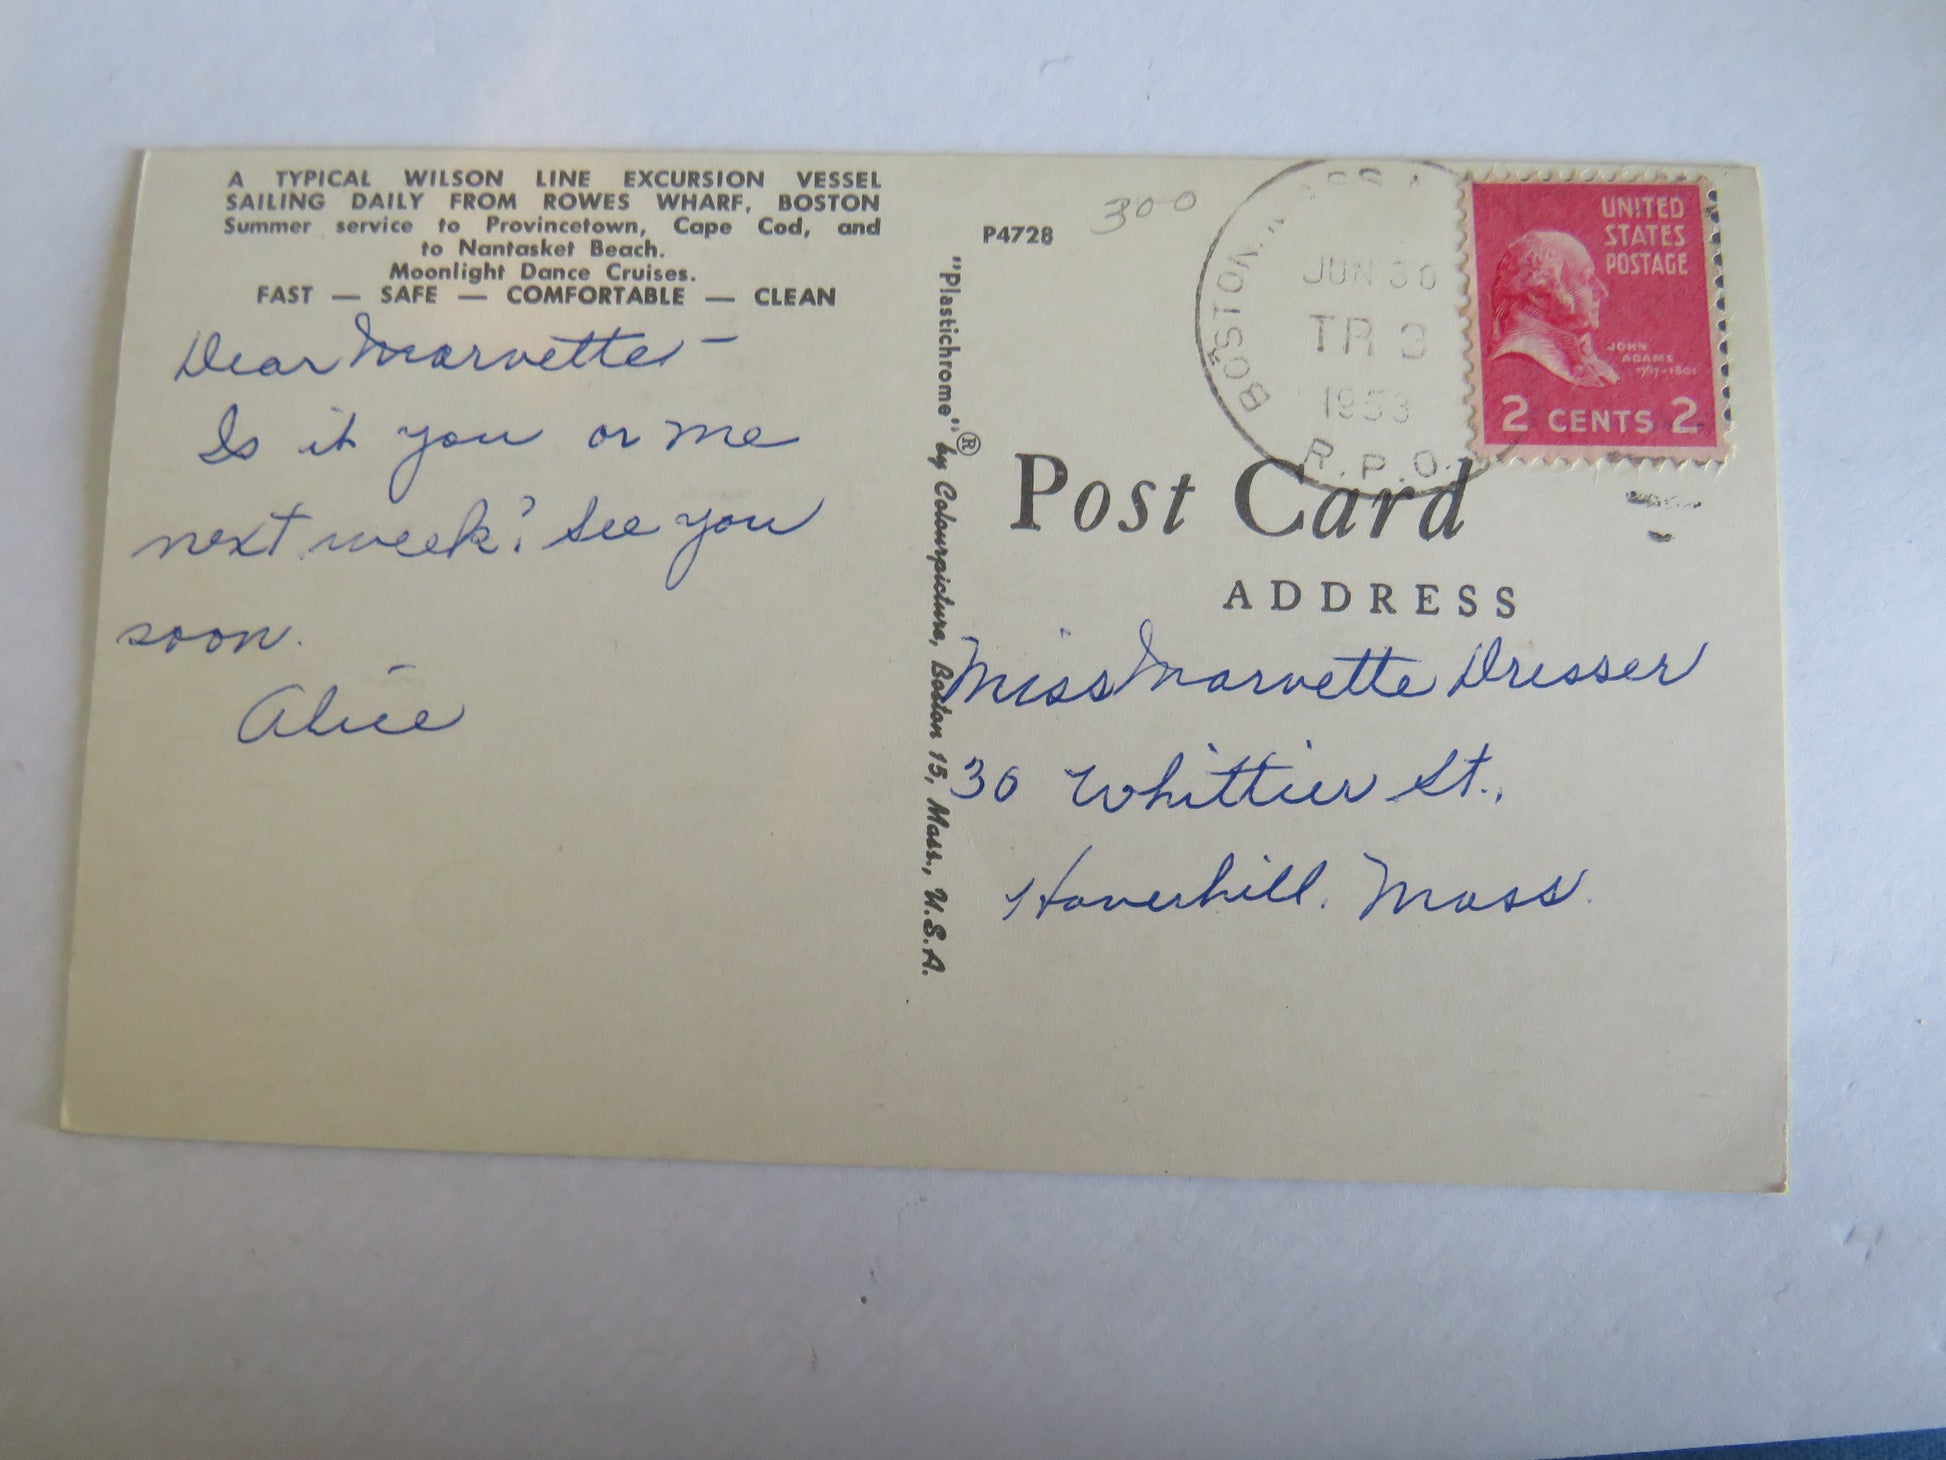 A TYPICAL WILSON LINE EXCURSION VESSEL
SAILING DAILY FROM ROWES WHARF, BOSTON
Summer service to Provincetown, Cape Cod, and
to Nantasket Beach.
Moonlight Dance Cruises.
FAST — SAFE — COMFORTABLE — CLEAN
Dear Marvette –
Is it you or me
next week? See you
soon.
Alice
"Plastichrome"® by Colourpicture, Boston 15, Mass., U.S.A.
P4728
300
BOSTON
JUN 30
TR 3
1953
R.P.O.
UNITED
STATES
POSTAGE
JOHN
ADAMS
1797-1801
2 CENTS 2
Post Card
ADDRESS
Miss Marvette Dresser
30 Whittier St.,
Haverhill. Mass.